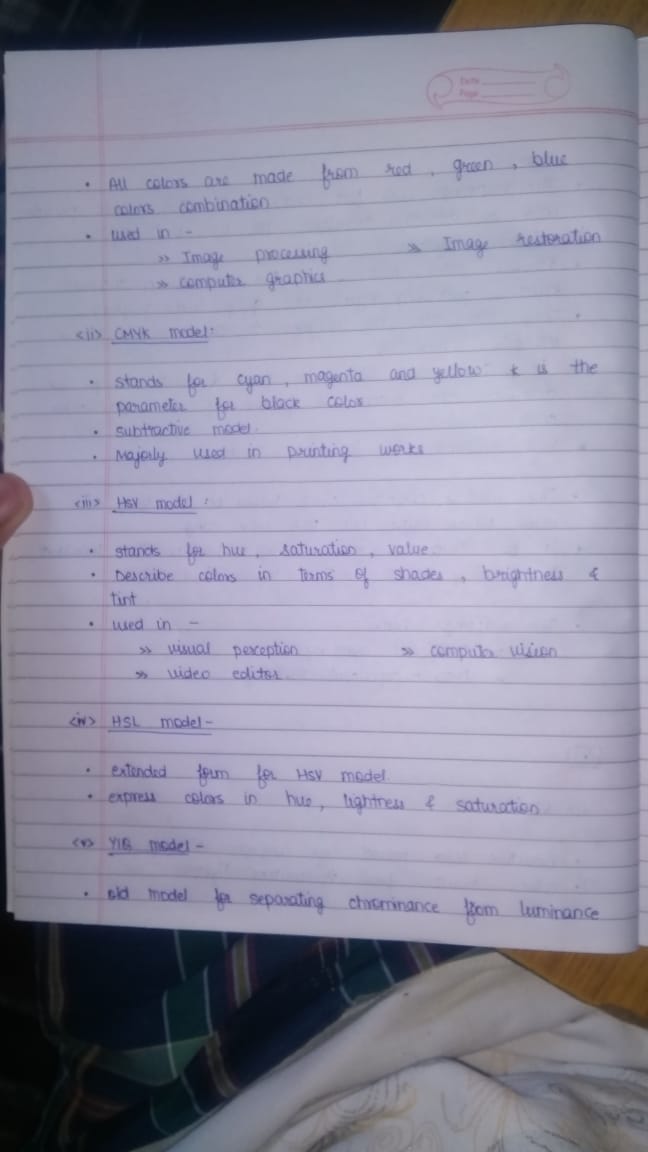 Date
Page
• All colors are made from red, green, blue
colors combination
• used in -
» Image processing » Image restoration
» computer graphics
<ii> CMYK model:
• stands for cyan, magenta and yellow k is the
parameter for black color
• subtractive model.
• Majorly used in printing works
<iii> HSV model:
• stands for hue, saturation, value
• Describe colors in terms of shades, brightness &
tint
• used in -
» visual perception » computer vision
» video editor
<iv> HSL model -
• extended form for HSV model.
• express colors in hue, lightness & saturation
<v> YIQ model -
• old model for separating chrominance from luminance